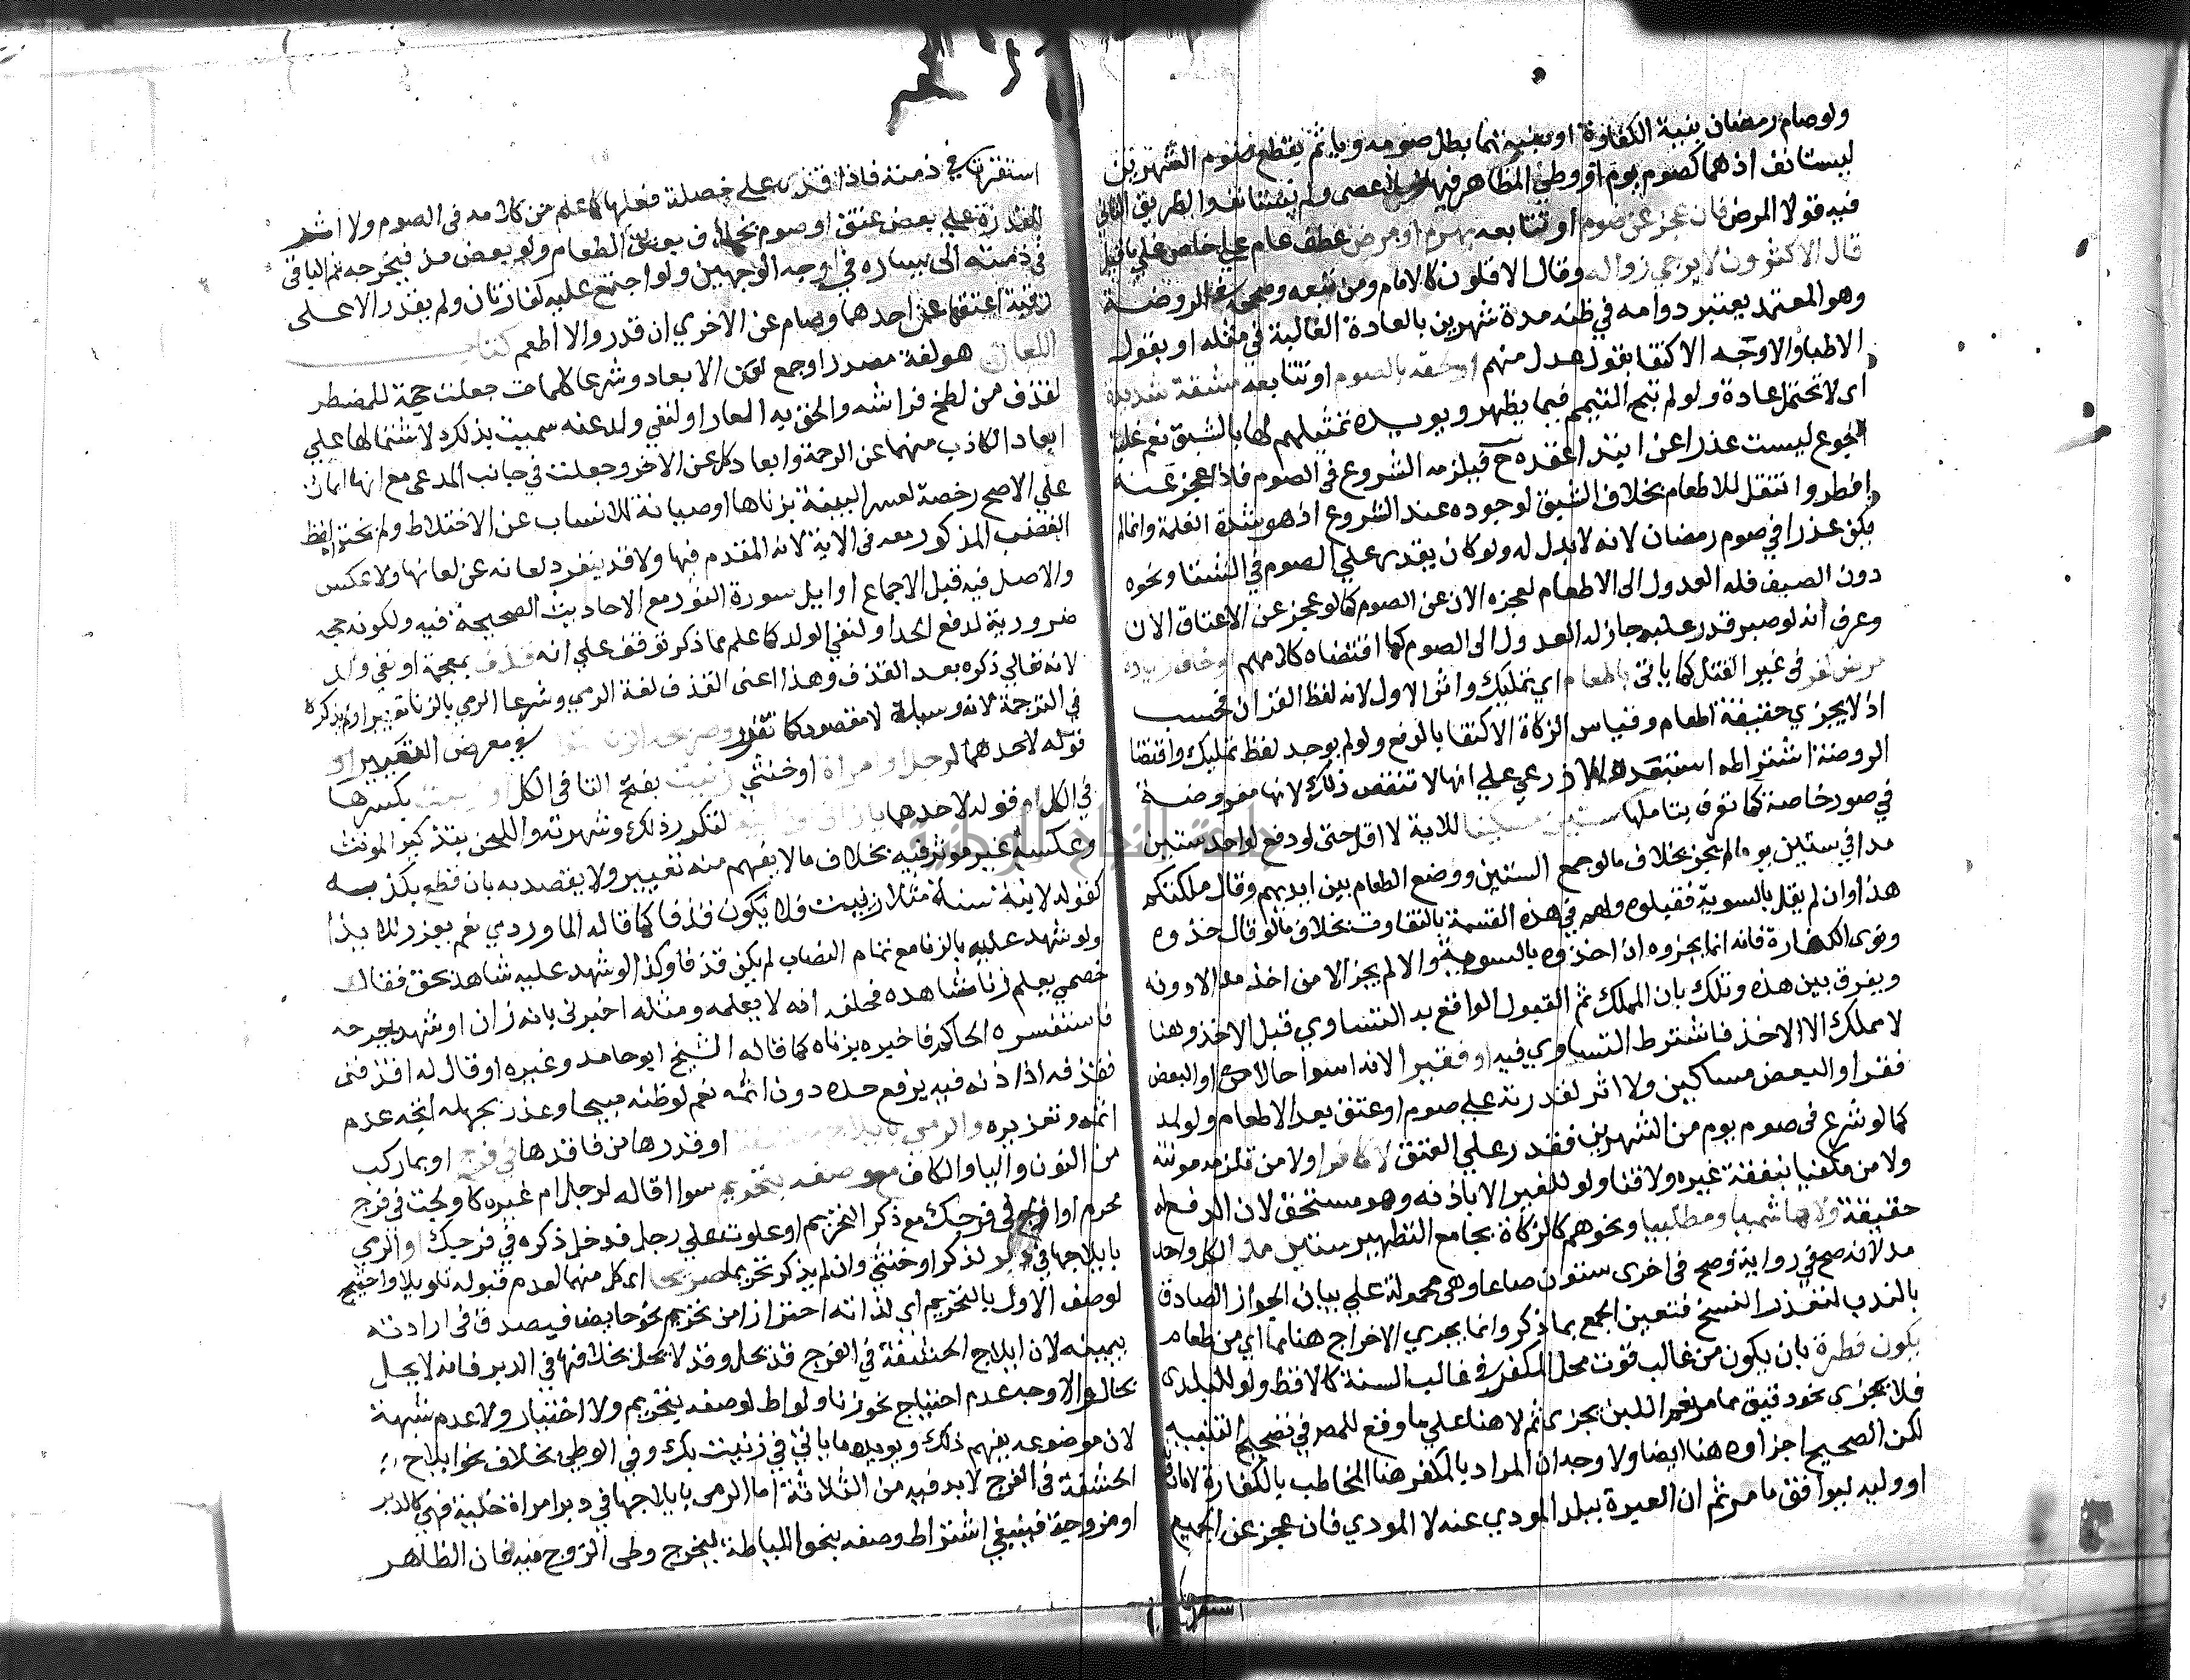 ولو صام رمضان بنية الكفارة او بنيتهما بطل صومه وياثم بقطع صوم الشهرين
ليستانف اذ هما كصوم يوم او وطئ المظاهر فيهما ليلا عصى ولم يستانف والطريق الثاني
فيه قولا المرض فان عجز عن صوم او تتابعه بهرم او مرض عطف عام على خاص على ما قيل
قال الاكثرون لا يرجى زواله وقال الاقلون كالامام ومن تبعه وصححه في الروضة
وهو المعتمد يعتبر دوامه في ظنه مدة شهرين بالعادة الغالبة في مثله او بقول
الاطبا والاوجه الاكتفا بقول عدل منهم او لحقه بالصوم او تتابعه مشقة شديدة
اى لا تحتمل عادة ولو لم تبح التيمم فيما يظهر ويويده تمثيلهم لها بالشبق نعم غلبة
الجوع ليست عذرا عن ابتدا عقده ح فيلزمه الشروع فى الصوم فاذا عجز عنه
افطر وانتقل للاطعام بخلاف الشبق لوجوده عند الشروع اذ هو شدة الغلمة وانما لم
يكن عذرا في صوم رمضان لانه لا بدل له ولو كان يقدر على الصوم في الشتا ونحوه
دون الصيف فله العدول الى الاطعام لعجزه الان عن الصوم كما لو عجز عن الاعتاق الان
وعرف انه لو صبر قدر عليه جاز له العدول الى الصوم كما اقتضاه كلامهم او خاف زيادة
مرض كفر فى غير القتل كما ياتى باطعام اي تمليك واثر الاول لانه لفظ القران فحسب
اذ لا يجزي حقيقة اطعام وقياس الزكاة الاكتفا بالدفع ولو لم يوجد لفظ تمليك واقتضا
الروضة اشتراطه استبعده الاذرعي على انها لا تقتضى ذلك لانها مفروضة
في صور خاصة كما تعرف بتاملها ستين مسكينا للاية لا اقل حتى لو دفع لواحد ستين
مدا في ستين يوما لم يجز بخلاف ما لو جمع الستين ووضع الطعام بين ايديهم وقال ملكتكم
هذا وان لم يقل بالسوية فقبلوه ولهم في هذه القسمة بالتفاوت بخلاف ما لو قال خذوه
ونوى الكفارة فانه انما يجزوه ان اخذوه بالسوية والا لم يجز الا من اخذ مدا لا دونه
ويفرق بين هذه وتلك بان المملك ثم القبول الواقع به التساوي قبل الاخذ وهنا
لا مملك الا الاخذ فاشترط التساوي فيه او فقيرا لانه اسوا حالا منه او البعض
فقرا والبعض مساكين ولا اثر لقدرته على صوم او عتق بعد الاطعام ولو لمد
كما لو شرع فى صوم يوم من الشهرين فقدر على العتق لا كافرا ولا من تلزمه مونته
ولا من مكفيا بنفقة غيره ولا قنا ولو للغير الا باذنه وهو مستحق لان الدفع له
حقيقة ولا هاشميا ومطلبيا ونحوهم كالزكاة بجامع التطهير ستين مدا لكل واحد
مد لانه صح في رواية وصح فى اخرى ستون صاعا وهى محمولة على بيان الجواز الصادق
بالندب لتعذر النسخ فتعين الجمع بما ذكر وانما يجري الاخراج هنا مما اي من طعام
يكون فطرة بان يكون من غالب قوت محل المكفر فى غالب السنة كالاقط ولو للبلدى
فلا يجزى نحو دقيق مما مر نعم اللبن يجزى ثم لا هنا على ما وقع للمص في تصحيح التنبيه
لكن الصحيح اجزاوه هنا ايضا والاوجه ان المراد بالمكفر هنا المخاطب بالكفارة لا ماذونه
او وليه ليوافق ما مر ثم ان العبرة ببلد المودي عنه لا المودي فان عجز عن الجميع
استقرت
استقرت في ذمته فاذا قدر على خصلة فعلها كما علم من كلامه فى الصوم ولا اثر
لقدرة على بعض عتق او صوم بخلاف بعض الطعام ولو بعض مد فيخرجه ثم الباقى
فى ذمته الى يساره في اوجه الوجهين ولو اجتمع عليه كفارتان ولم يقدر الا على
رقبة اعتقها عن احدهما وصام عن الاخري ان قدر والا اطعم كتاب
اللعان هو لغة مصدر او جمع لعن الابعاد وشرعا كلمات جعلت حجة للمضطر
لقذف من لطخ فراشه والحق به العار او لنفي ولد عنه سميت بذلك لاشتمالها على
ابعاد الكاذب منهما عن الرحمة وابعاد كل عن الاخر وجعلت في جانب المدعى مع انها ايمان
على الاصح رخصة لعسر البينة بزناها او صيانة للانساب عن الاختلاط ولم يختر لفظ
الغضب المذكور معه فى الاية لانه المقدم فيها ولا قد ينفرد لعانه عن لعانها ولا عكس
والاصل فيه قبل الاجماع اوايل سورة النور مع الاحاديث الصحيحة فيه ولكونه حجة
ضرورية لدفع الحد او لنفي الولد كما علم مما ذكر توقف على انه قذف بمعجمة او نفي ولد
لانه تعالى ذكره بعد القذف وهذا اعنى القذف لغة الرمي وشرعا الرمي بالزنا تعييرا ولم يذكره
في الترجمة لانه وسيلة لا مقصود كما تقرر وصريحه الزنا في معرض التعيير او
قوله لاحدهما لرجل او امراة او خنثى زنيت بفتح التا فى الكل او زنيت بكسرها
في الكل او قوله لاحدهما يا زانى لتكرر ذلك وشهرته واللحن بتذكير المونث
وعكسه غير موثر فيه بخلاف ما لا يفهم منه تعيير ولا يقصد به بان قطع بكذبه
كقوله لابنة سنة مثلا زنيت فلا يكون قذفا كما قاله الماوردي نعم يعزر للايذا
ولو شهد عليه بالزنا مع تمام النصاب لم يكن قذفا وكذا لو شهد عليه شاهد بحق فقال
خصمي يعلم زنا شاهده فحلف انه لا يعلمه ومثله اخبرنى بانه زان او شهد بجرحه
فاستفسره الحاكم فاخبره بزناه كما قاله الشيخ ابو حامد وغيره او قال له اقذفنى
فقذفه اذ اذنه فيه يرفع حده دون اثمه نعم لو ظنه مبيحا وعذر بجهله اتجه عدم
اثمه وتعزيره والرمي بايلاج حشفة او قدرها من فاقدها في فرج او بما ركب
من النون واليا والكاف مع وصفه بتحريم سوا اقاله لرجل ام غيره كاولجت في فرج
محرم او اولج في فرجك مع ذكر التحريم او علوت على رجل فدخل ذكره في فرجك او الرمي
بايلاجها في دبر لذكر او خنثى وان لم يذكر تحريما صريحا اى كل منهما لعدم قبوله تاويلا واحتيج
لوصف الاول بالتحريم اى لذاته احترازا من تحريم نحو حايض فيصدق فى ارادته
بيمينه لان ايلاج الحشفة في الفرج قد يحل وقد لا يحل بخلافها في الدبر فانه لا يحل
بحال والاوجه عدم احتياج نحو زنا ولواط لوصفه بتحريم ولا اختيار ولا عدم شبهة
لان موضوعه يفهم ذلك ويويده ما ياتي في زنيت بك وفى الوطئ بخلاف نحو ايلاج
الحشفة فى الفرج لا بد فيه من الثلاثة اما الرمى بايلاجها في دبر امراة خلية فهى كالذكر
او مزوجة فينبغي اشتراط وصفه بنحو اللياطة ليخرج وطى الزوج فيه فان الظاهر